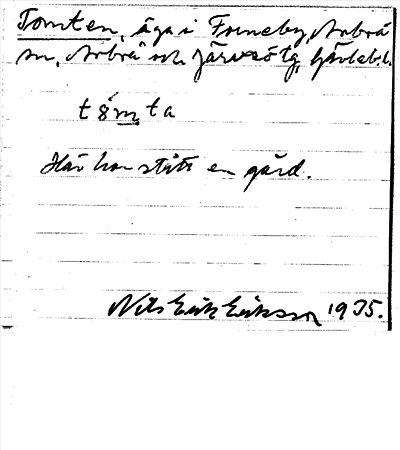 Tomten, äga i Forneby, Arbrå
sn, Arbrå och Järvsötg, Gävleb.l.
tømta
Här har stått en gård.
Nils Erik Eriksson 1935.